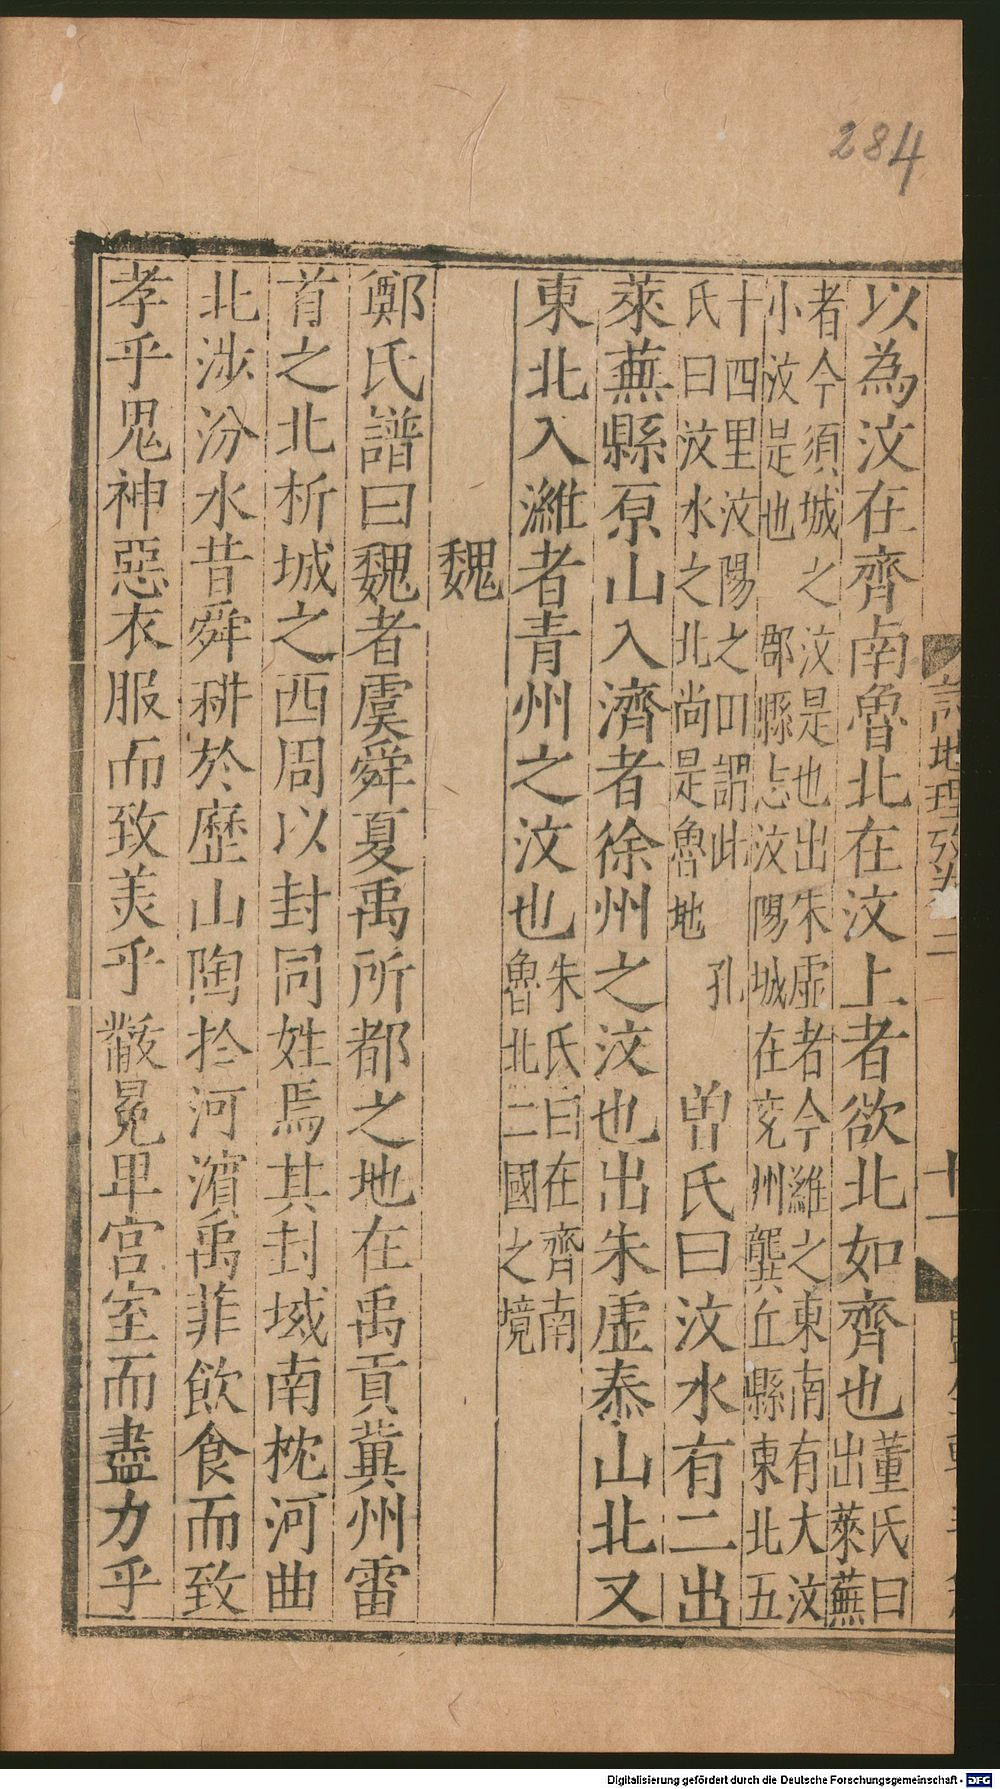 284
以為汶在齊南魯北在汶上者欲北如齊也董氏曰出萊蕪
者今須城之汶是也出朱虛者今濰之東南有大汶
小汶是也 郡縣志汶陽城在兗州龔丘縣東北五
十四里汶陽之田謂此 孔
氏曰汶水之北尚是魯地 曽氏曰汶水有二出
萊蕪縣原山入濟者徐州之汶也出朱虛泰山北又
東北入濰者青州之汶也朱氏曰在齊南魯北二國之境
魏
鄭氏譜曰魏者虞舜夏禹所都之地在禹貢冀州雷
首之北析城之西周以封同姓焉其封域南枕河曲
北涉汾水昔舜耕於歷山陶於河濱禹菲飲食而致
孝乎鬼神惡衣服而致美乎黻冕卑宮室而盡力乎
詩地理攷卷二
十一
Digitalisierung gefördert durch die Deutsche Forschungsgemeinschaft - DFG